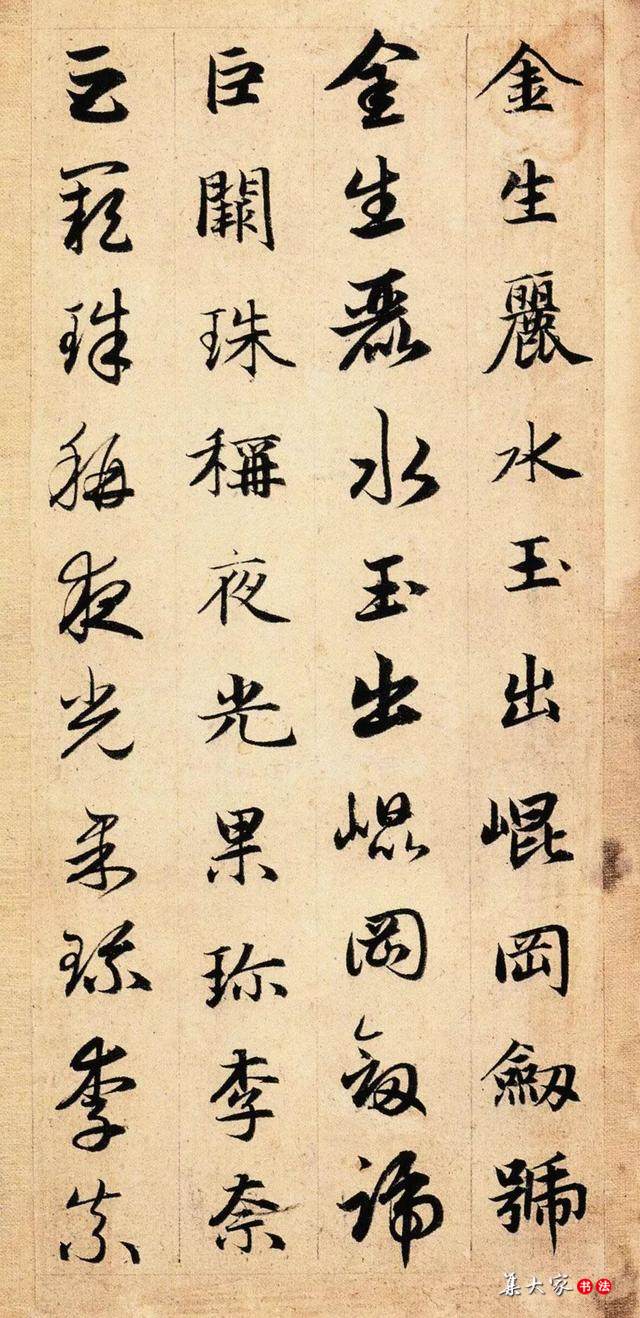 金生麗水玉出崐岡劒號
金生麗水玉出崐岡劒號
巨闕珠稱夜光果珍李柰
巨闕珠稱夜光果珍李柰
集大家书法